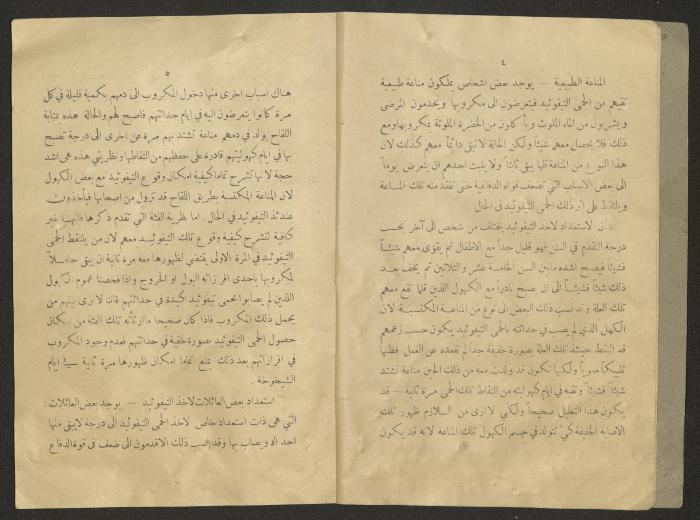 ٤
المناعة الطبيعية — يوجد بعض اشخاص يملكون مناعة طبيعية
تقيهم من الحمى التيفوئيد فيتعرضون الى مكروبها ويخدمون المرضى
ويشربون من الماء الملوث ويأكلون من الخضرة الملوثة بمكروبها ومع
ذلك فلا يحصل معهم شيئاً ولكن الحالة لا تبقى دائماً معهم كذلك لان
هذا النوع من المناعة قلما يبقى ثابتاً ولا يلبث احدهم ان يتعرض يوماً
الى بعض الاسباب التي تضعف قواه الدفاعية حتى تفقد منه تلك المناعة
ويلتقط على اثر ذلك الحمى التيفوئيد في الحال
ان الاستعداد لاخذ التيفوئيد يختلف من شخص الى آخر بحسب
درجة التقدم في السن فهو قليل جداً مع الاطفال ثم يقوى معهم شيئاً
فشيئاً فيصبح اشده مابين السن الخامسة عشر والثلاثين ثم يخف بعد
ذلك شيئاً فشيئاً الى ان يصبح نادراً مع الكهول اللذين قلما تقع معهم
تلك العلة وقد نسب ذلك البعض الى نوع من المناعة المكتسبة لان
الكهل الذي لم يصب في حداثته بالحمى التيفوئيد يكون حسب زعمهم
قد التقط حينئذ تلك العلة بصورة خفيفة جداً لم تقعده عن العمل فظنها
تلبكاً معوياً ولكنها تكون قد ولدت معه من ذلك الحين مناعة تشتد
شيئاً فشيئاً وتقيه في ايام كهوليته من التقاط تلك الحمى مرة ثانية — قد
يكون هذا التعليل صحيحاً ولكني لا ارى من اللازم ظهور تلك
الاصابة الخفيفة كي تتولد في جسم الكهول تلك المناعة لانه قد يكون
٥
هناك اسباب اخرى منها دخول المكروب الى دمهم بكمية قليلة في كل
مرة كانوا يتعرضون اليه في ايام حداثتهم فاصبح لهم والحالة هذه بمثابة
اللقاح يولد في دمهم مناعة تشتد بهم مرة عن اخرى الى درجة تصبح
بها في ايام كهوليتهم قادرة على حفظهم من التقاطها ونظريتي هذه هي اشد
حجة لانها تشرح تماما كيفية امكان وقوع التيفوئيد مع بعض الكهول
لان المناعة المكتسبة بطريق اللقاح قد تزول من اصحابها فيأخذون
عندئذ التيفوئيد في الحال. اما نظرية الفئة التي تقدم ذكرها فانها غير
كافية لتشرح كيفية وقوع تلك التيفوئيد معهم لان من يلتقط الحمى
التيفوئيد في المرة الاولى يقتضي لظهورها معه مرة ثانية ان يبقى حاملاً
لمكروبها باحدى افرازاته البول او الخروج واذا فحصنا عموم الكهول
اللذين لم يصابوا بحمى تيفوئيد اكيدة في حداثتهم فاننا لا نرى بينهم من
يحمل ذلك المكروب فاذا كان صحيحا ما ارتأته تلك الفئة من كمان
حصول الحمى التيفوئيد بصورة خفيفة في حداثتهم فعدم وجود المكروب
في افرازاتهم بعد ذلك يمنع تماما امكان ظهورها مرة ثانية في ايام
الشيخوخة .
استعداد بعض العائلات لاخذ التيفوئيد — يوجد بعض العائلات
التي هي ذات استعداد خاص لاخذ الحمى التيفوئيد الى درجة لا يبقى منها
احد الا ويصاب بها وقد نسب ذلك الاقدمون الى ضعف في قوة الدفاع